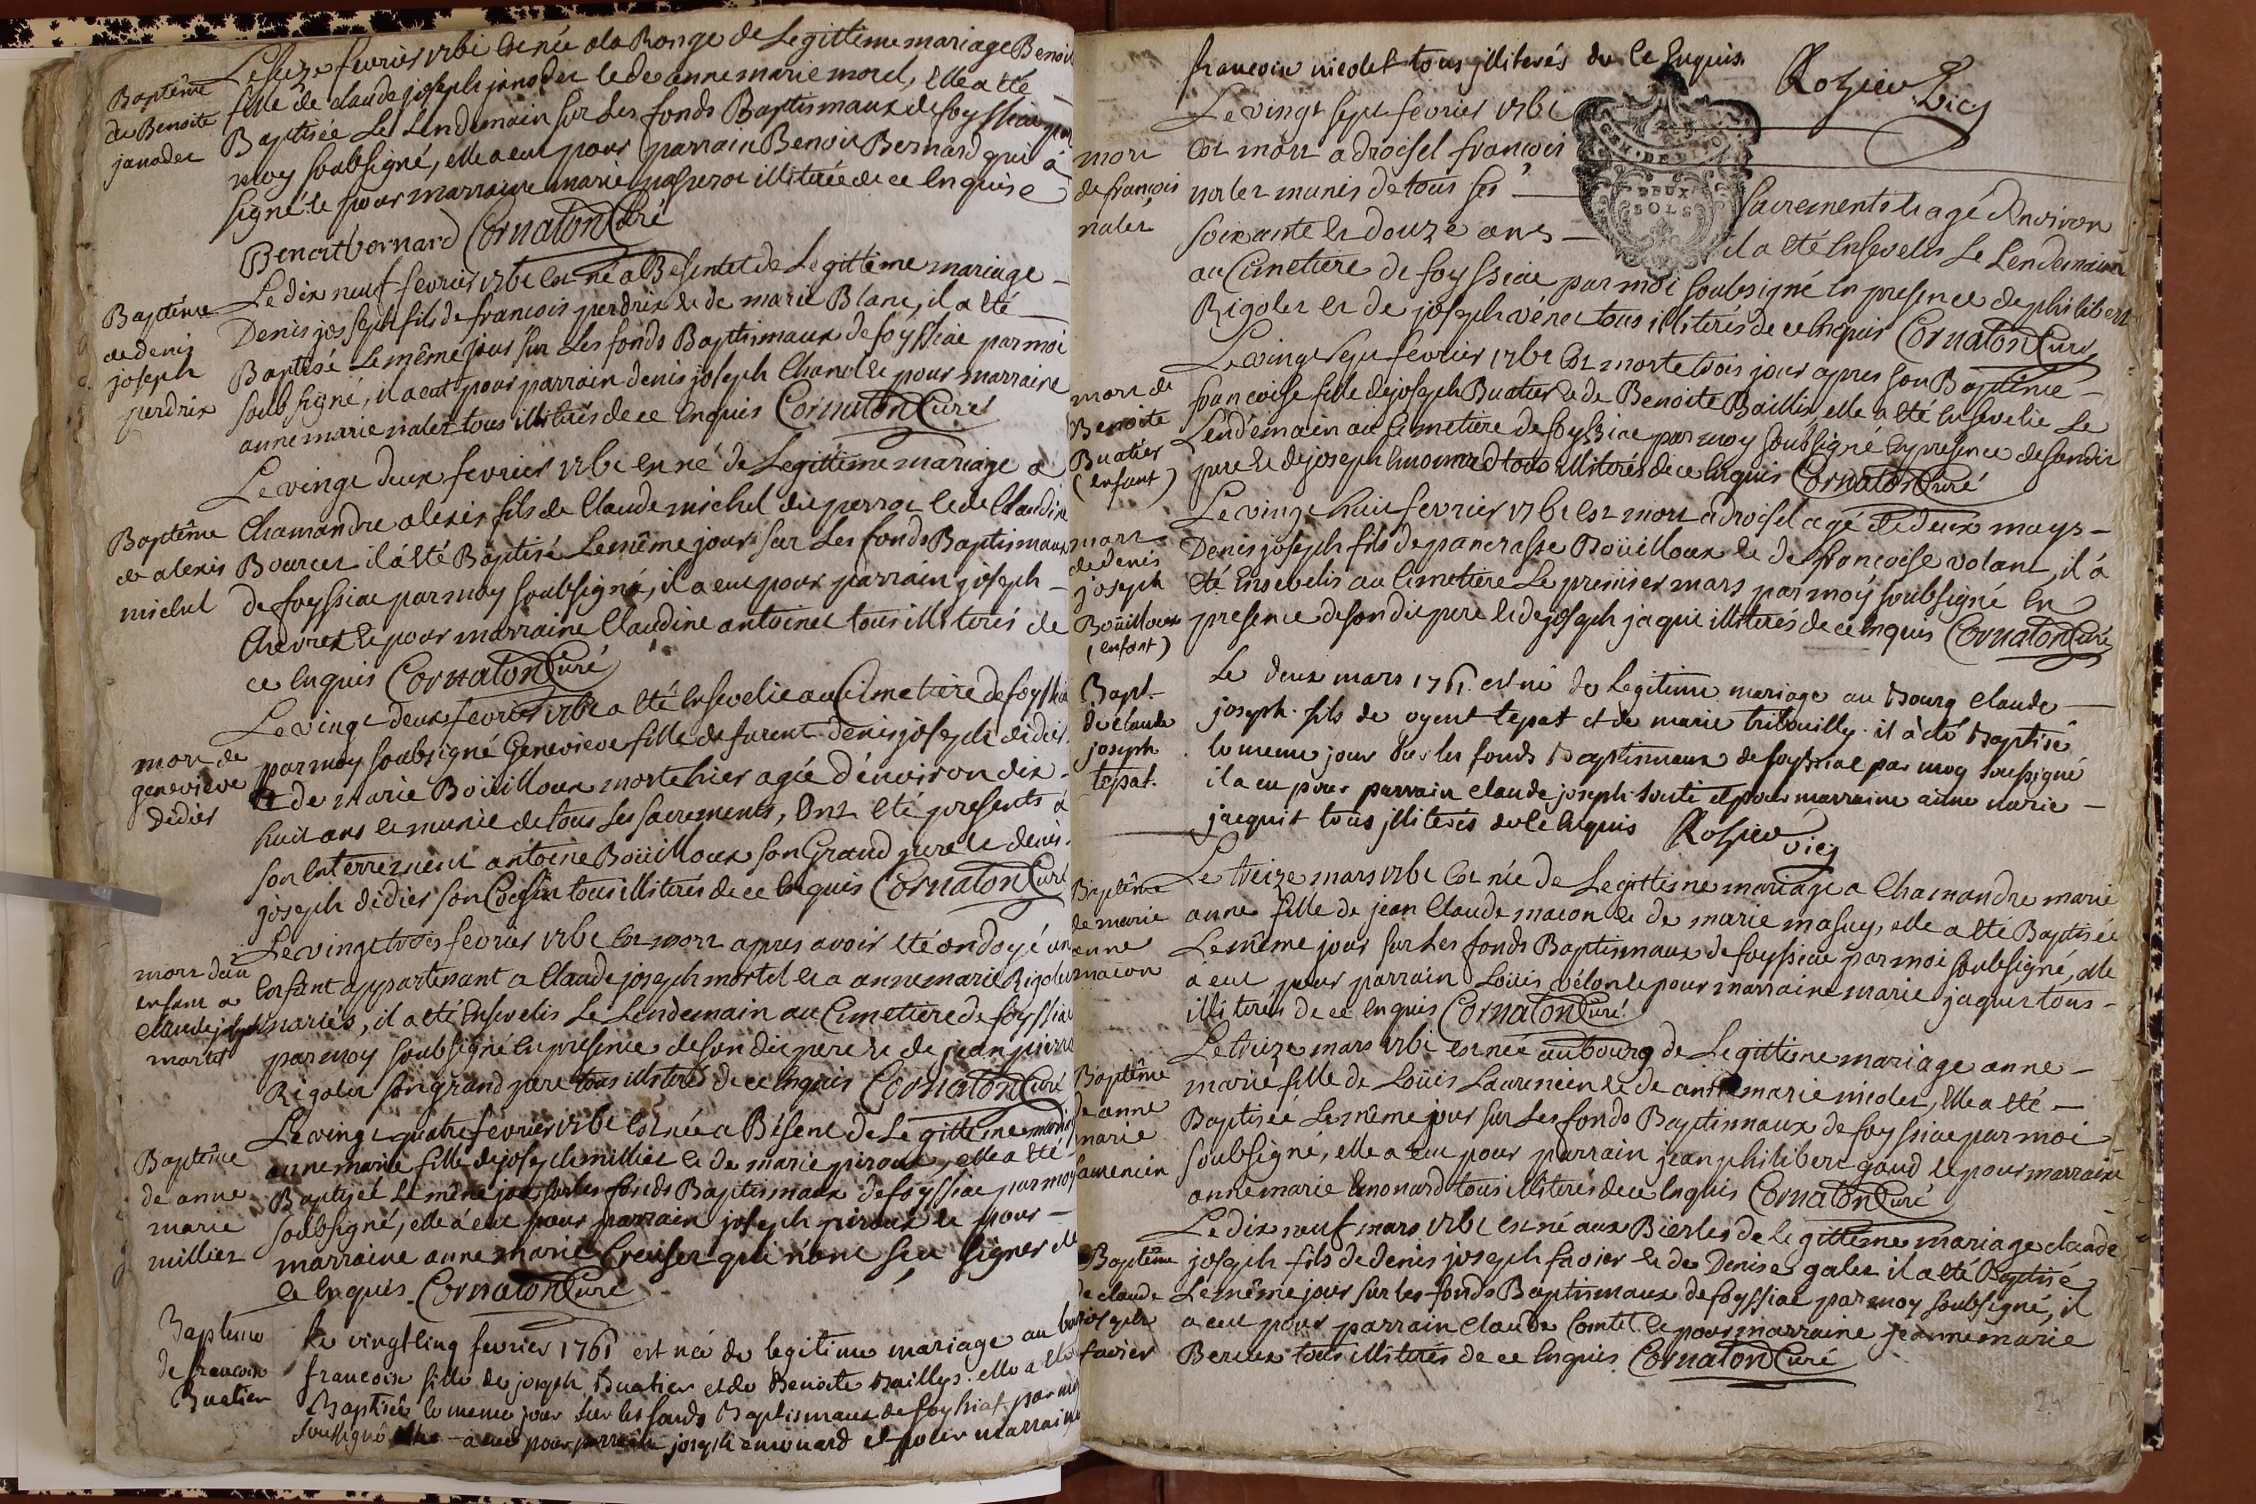 Baptême
de Benoite
janodet
Le seize fevrier 1761 est née a la Ronge de Legittime mariage Benoit
fille de claude joseph janodet et de anne marie morel, elle a eté
Baptisée Le Lendemain sur Les fonds Baptismaux de foyssiac par
moy soubsigné, elle a eut pour parrain Benoit Bernard qui a
signé et pour marraine marie illiterée de ce Enquise
Benoit bernard Cornaton Curé
Baptême
de denis
joseph
perdrix
Le dix neuf fevrier 1761 est né a Besentet de Legittime mariage
Denis joseph fils de francois perdrix et de marie Blanc, il a eté
Baptisé Le même jour sur Les fonds Baptismaux de foyssiac par moi
soubsigné, il a eut pour parrain denis joseph Chanel et pour marraine
anne marie nalet tous illiterés de ce Enquis Cornaton Curé
Baptême
de alexis
michel
Le vingt deux fevrier 1761 est né de Legittime mariage a
Chamandre alexis fils de Claude michel dit perrot et de Claudine
Bourcet il a eté Baptisé Le même jour sur Les fonds Baptismaux
de foyssiac par moy soubsigné, il a eut pour parrain joseph
Chevret et pour marraine Claudine antoinet tous illiterés de
ce Enquis Cornaton Curé
mort de
genevieve
didier
Le vingt deux fevrier 1761 a eté Ensevelie au Cimetiere de foyssia
par moy soubsigné Genevieve fille de furent denis joseph didier
et de marie Boüilloux morte hier agée d'environ dix
huit ans et munie de tous Les sacrements, Ont eté presents a
son Enterrement antoine Boüilloux son Grand pere et denis
joseph didier son Cousin tous illiterés de ce Enquis Cornaton Curé
mort d'un
enfant a
claude joseph
martel
Le vingt trois fevrier 1761 est mort apres avoir eté ondoyé un
Enfant appartenant a Claude joseph mortel et a anne marie Rigolet
mariés, il a eté Ensevelis Le Lendemain au Cimetiere de foyssiac
par moy soubsigné En presence de son dit pere et de jean pierre
Rigolet son grand pere tous illiterés de ce Enquis Cornaton Curé
Baptême
de anne
marie
milliet
Le vingt quatre fevrier 1761 est née a Bésent de Legittime mariage
anne marie fille de joseph milliet et de marie piroux, elle a eté
Baptisée Le même jour sur les fonds Baptismaux de foyssiac par moy
soubsigné, elle a eut pour parrain joseph piroux et pour
marraine anne marie Creuset qui n'ont sçu signer de
ce Enquis Cornaton Curé
Bapteme
de francoise
Buatier
Le vingt cinq fevrier 1761 est née de legitime mariage au bou
francoise fille de joseph Buatier et de Benoite Baillys. elle a eté
Baptisée le meme jour sur les fonds Baptismaux de foyssiat par moy
soussigné a eu pour parrain joseph emonard et pour marraine
francoise nicolet tous illiterés de ce Enquis. Rozier Vic
GEN. DE DIJON
DEUX
SOLS
mort
de françois
nalet
Le vingt sept fevrier 1761
est mort a droisel francois
nalet munis de tous ses
Sacrements et agé d'Environ
soixante et douze ans
il a eté Ensevelis Le Lendemain
au Cimetiere de foyssiac par moi soubsigné En presence de philibert
Rigolet et de joseph vénet tous illiterés de ce Enquis Cornaton Curé
mort de
Benoite
Buatier
(enfant)
Le vingt sept fevrier 1761 Est morte trois jour apres son Baptême
francoise fille de joseph Buatier et de Benoite Baillis, elle a eté Ensevelie Le
Lendemain au Cimetiere de foyssiac par moy soubsigné En presence de son dit
pere et de joseph Enomard tous illiterés de ce Enquis Cornaton Curé
mort
de denis
joseph
Boüilloux
(enfant)
Le vingt huit fevrier 1761 est mort a droisel agé de deux mays
Denis joseph fils de pancrasse Boüilloux et de francoise volant, il a
eté Ensevelis au Cimetiere Le premier mars par moy soubsigné En
presence de son dit pere et de joseph jaquit illiterés de ce Enquis Cornaton Curé
Bapt.
de claude
joseph
tepat.
Le deux mars 1761. est né de legitime mariage au Bourg claude
joseph. fils de oyent tepat et de marie tribouilly. il a eté Baptisé
le meme jour sur les fonds Baptismaux de foyssiac par moy soussigné
il a eu pour parrain claude joseph et pour marraine anne marie
jacquit tous illiterés de ce Enquis Rozier Vic
Baptême
de marie
anne
macon
Le treize mars 1761 Est née de Legittime mariage a Chamandre marie
anne fille de jean Claude macon et de marie masuy, elle a eté Baptisée
Le même jour sur Les fonds Baptismaux de foyssiac par moi soubsigné, elle
a eut pour parrain Loüis vélon et pour marraine marie jaquet tous
illiterés de ce Enquis Cornaton Curé
Baptême
de anne
marie
laurencin
Le treize mars 1761 est née au bourg de Legittime mariage anne
marie fille de Loüis Laurencin et de anne marie nicolet, elle a eté
Baptisée Le même jour sur Les fonds Baptismaux de foyssiac par moi
soubsigné, elle a eut pour parrain jean philibert gaud et pour marraine
anne marie Emonard tous illiterés de ce Enquis Cornaton Curé
Baptême
de claude
joseph
favier
Le dix neuf mars 1761 est né aux Bierles de legittime mariage claude
joseph fils de denis joseph favier et de Denise galet il a eté Baptisé
Le même jour sur les fonds Baptismaux de foyssiac par moy soubsigné, il
a eut pour parrain Claude Comtet et pour marraine jeanne marie
Bereux tous illiterés de ce Enquis Cornaton Curé
24